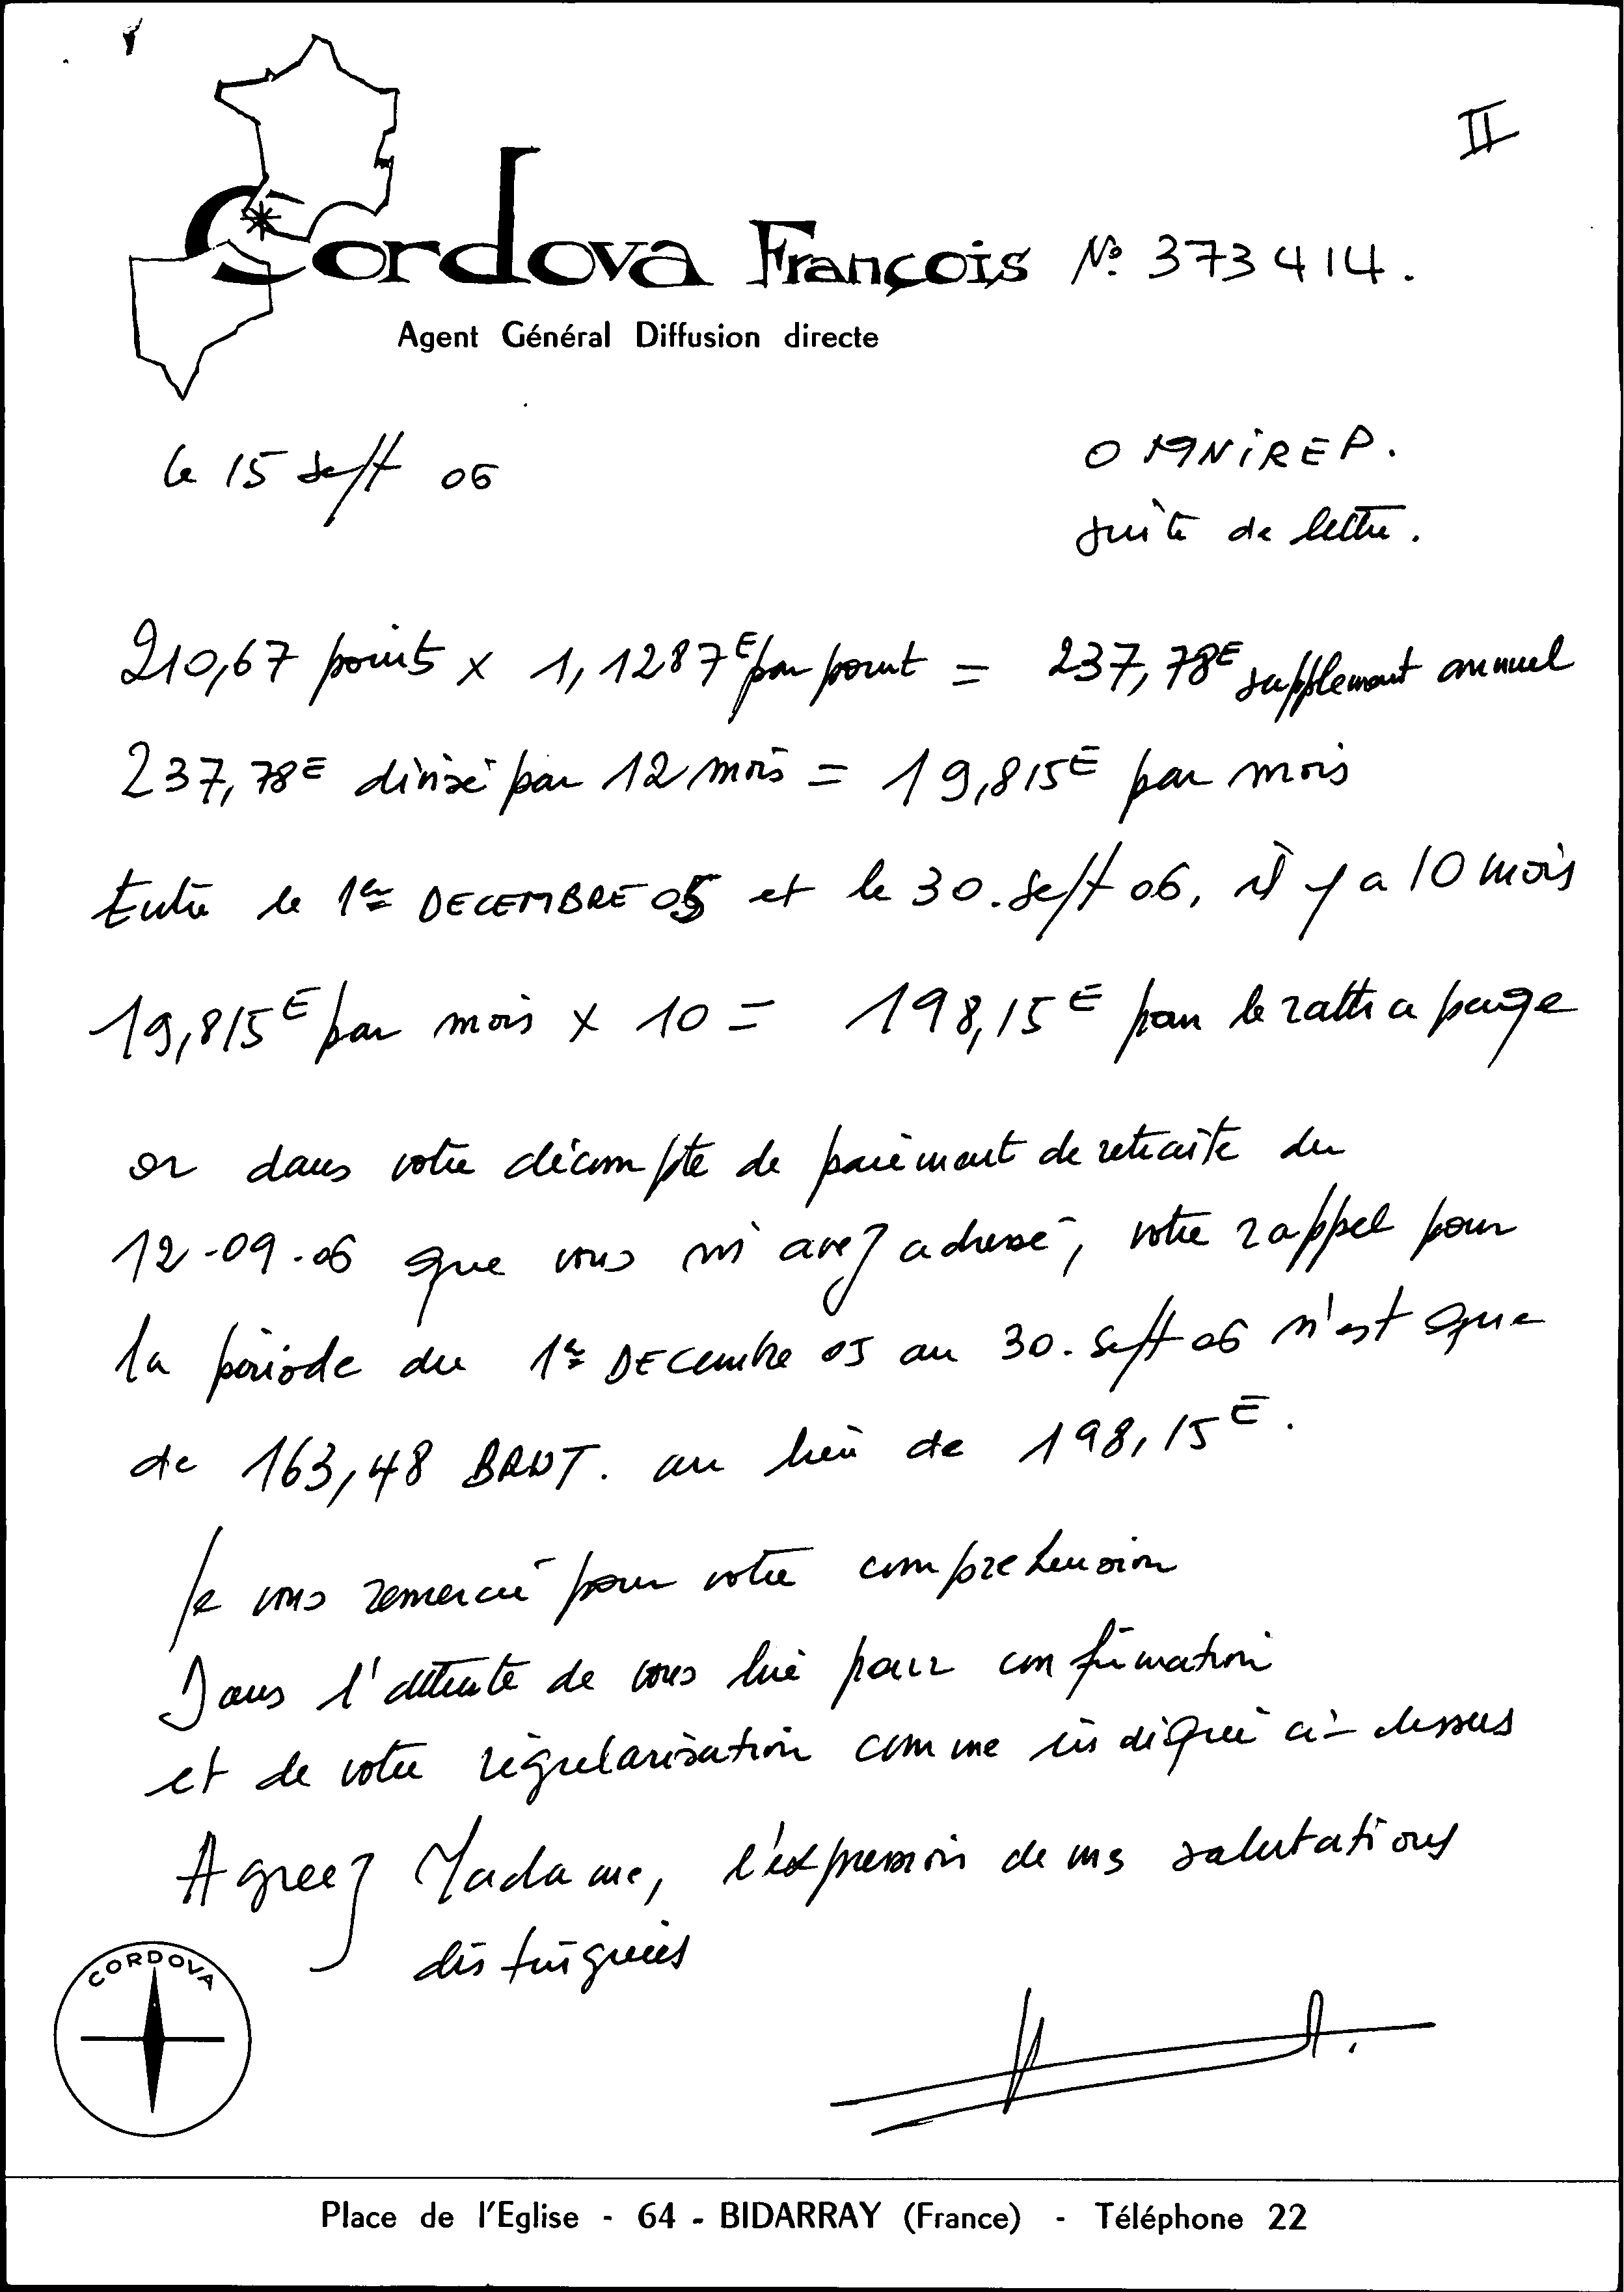 II
Cordova François N° 373414.
Agent Général Diffusion directe
le 15 Sept 06
OMNIREP.
suite de lettre.
210,67 points x 1,1287E par point = 237,78E supplement annuel
237,78E divisé par 12 mois = 19,815E par mois
Entre le 1er DECEMBRE 05 et le 30. Sept 06, il y a 10 mois
19,815E par mois x 10 = 198,15E pour le rattrapage
or dans votre décompte de paiement de retraite du
12-09-06 que vous m'avez adressé, votre rappel pour
la période du 1er DECembre 05 au 30. Sept 06 n'est que
de 163,48 BRUT. au lieu de 198,15E.
Je vous remercie pour votre comprehension
Dans l'attente de vous lire pour confirmation
et de votre régularisation comme indiqué ci-dessus
Agreez Madame, l'expression de mes salutations
distinguées
CORDOVA
Place de l'Eglise - 64 - BIDARRAY (France) - Téléphone 22